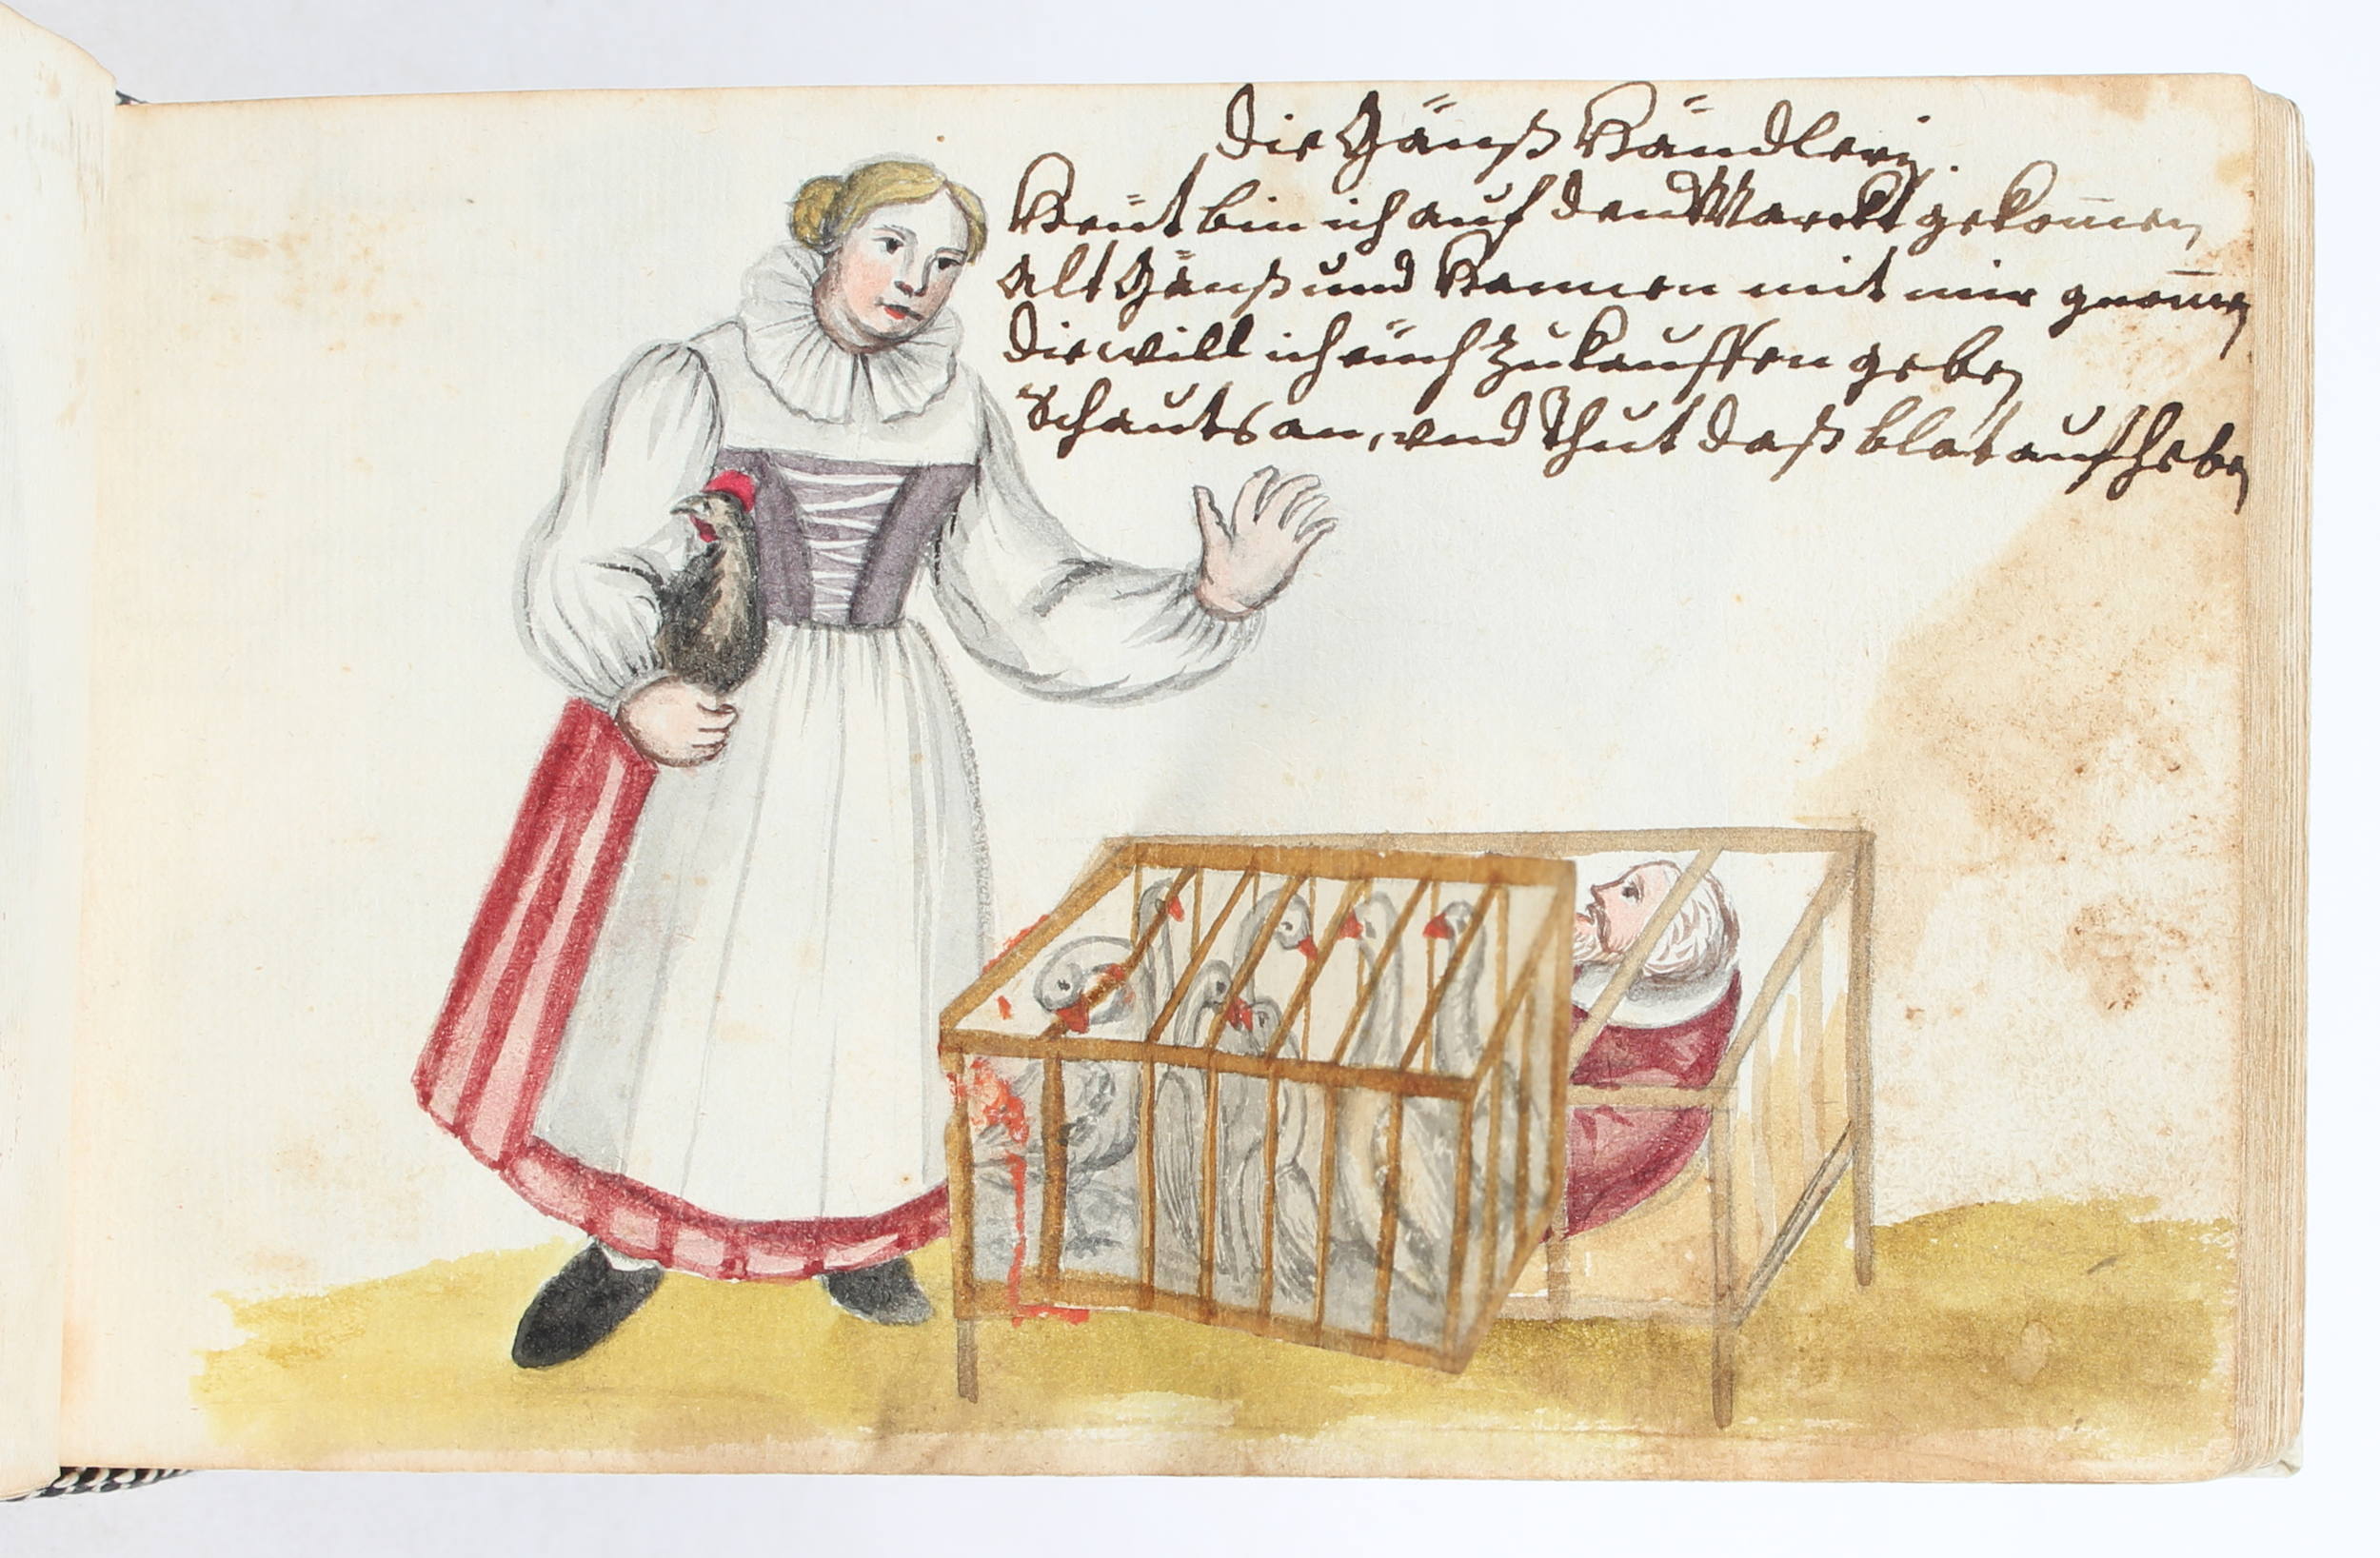 Die Gänß Händlerin.
Heüt bin ich auf den Marckt gekom̄en
Alt Gänß und Hennen mit mir genom̄en
die will ich eüch zu kauffen geben
Schauts an, und thut daß blat aufheben